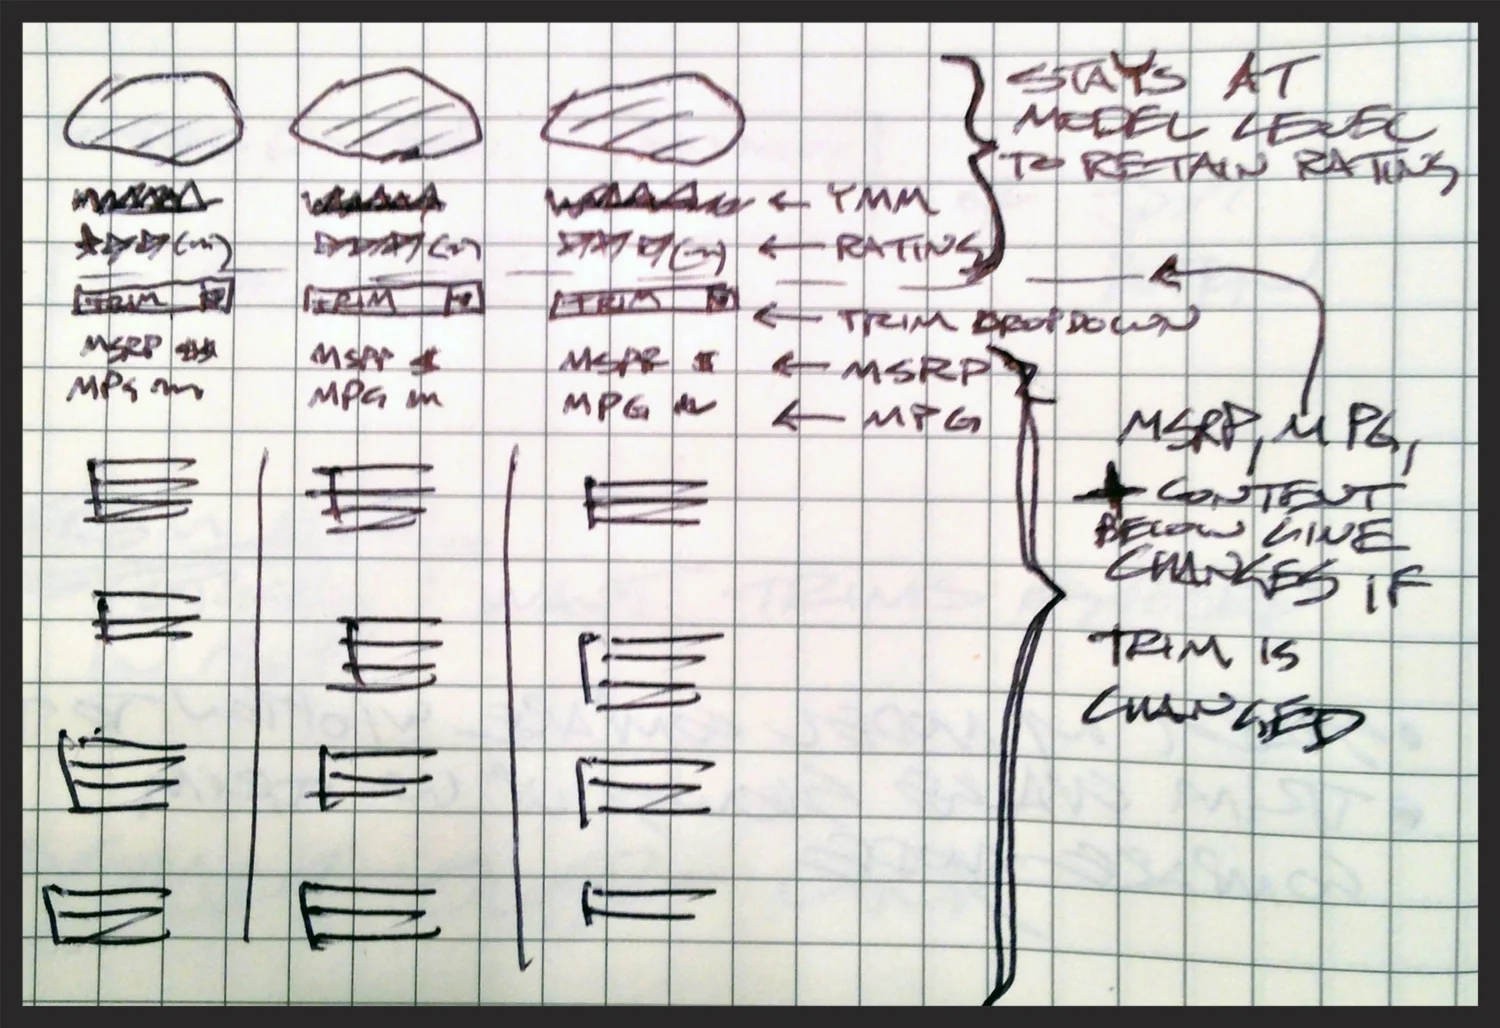 STAYS AT
MODEL LEVEL
TO RETAIN RATING
← YMM
← RATING
TRIM TRIM TRIM
← TRIM DROPDOWN
MSRP $$ MSRP $ MSRP $
← MSRP
MPG MPG MPG
← MPG
MSRP, MPG,
+ CONTENT
BELOW LINE
CHANGES IF
TRIM IS
CHANGED